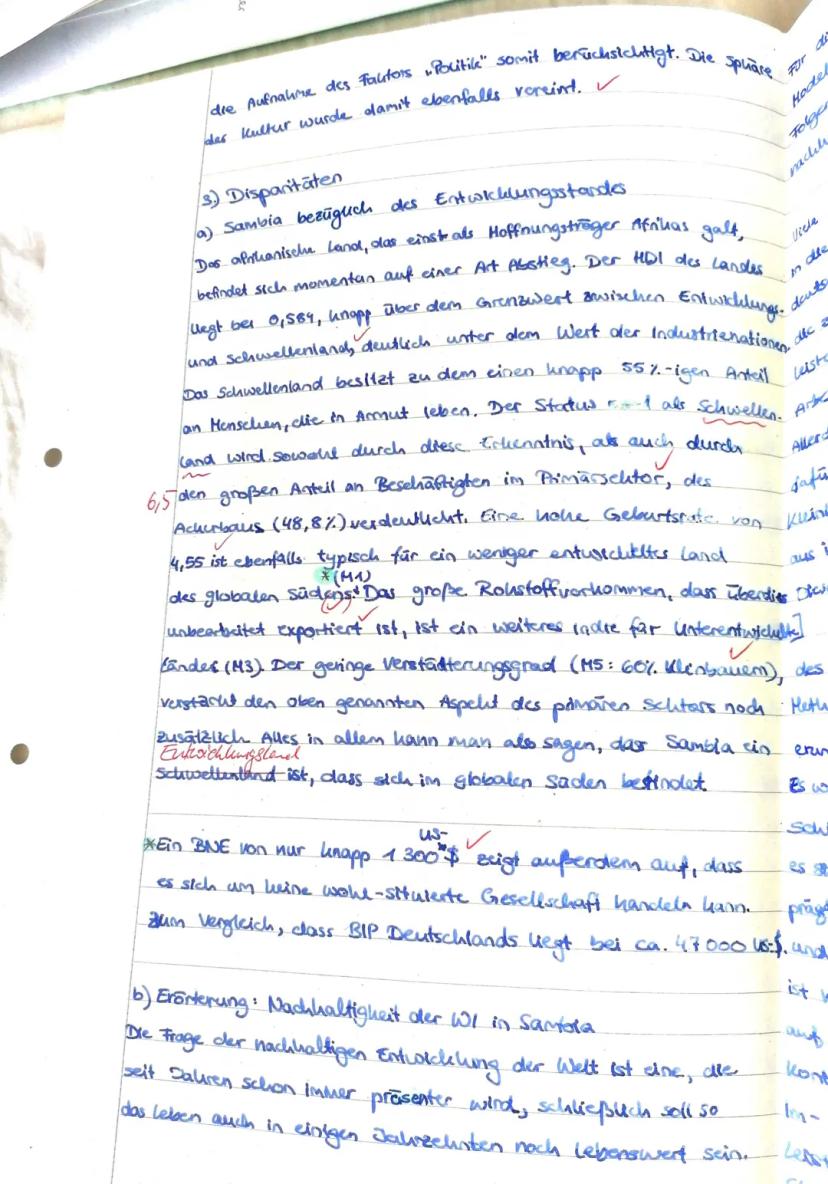 die Aufnahme des Faktors „Politik" somit berücksichtigt. Die Sphäre
der Kultur wurde damit ebenfalls vereint.
3.) Disparitäten
a) Sambia bezüglich des Entwicklungsstandes
Das afrikanische Land, das einst als Hoffnungsträger Afrikas galt,
befindet sich momentan auf einer Art Abstieg. Der HDI des Landes
liegt bei 0,584, knapp über dem Grenzwert zwischen Entwicklungs-
und Schwellenland, deutlich unter dem Wert der Industrienationen.
Das Schwellenland besitzt zu dem einen knapp 55%-igen Anteil
an Menschen, die in Armut leben. Der Status als Schwellen-
land wird sowohl durch diese Erkenntnis, als auch durch
6,5 den großen Anteil an Beschäftigten im Primärsektor, des
Ackerbaus (48,8%) verdeutlicht. Eine hohe Geburtsrate von
4,55 ist ebenfalls typisch für ein weniger entwickeltes Land
*(M1)
des globalen Südens. Das große Rohstoffvorkommen, dass überdies
unbearbeitet exportiert ist, ist ein weiteres Indiz für Unterentwickelte
Länder (M3). Der geringe Verstädterungsgrad (M5: 60% Kleinbauern),
verstärkt den oben genannten Aspekt des primären Sektors noch
zusätzlich. Alles in allem kann man also sagen, das Sambia ein
Entwicklungsland
Schwellenland ist, dass sich im globalen Süden befindet.
US-
*Ein BNE von nur knapp 1 300 $ zeigt außerdem auf, dass
es sich um keine wohl-situierte Gesellschaft handeln kann.
Zum Vergleich, dass BIP Deutschlands liegt bei ca. 47000 US-$.
b) Erörterung: Nachhaltigkeit der WI in Sambia
Die Frage der nachhaltigen Entwicklung der Welt ist eine, die
seit Jahren schon immer präsenter wird, schließlich soll so
das Leben auch in einigen Jahrzehnten noch lebenswert sein.
Für di
Model
Folger
Viele
in die
die
Leist
Arb
Allerd
dafü
Klein
aus i
des
Meth
Es w
Sch
es
präg
und
ist
auf
Kon
Im-